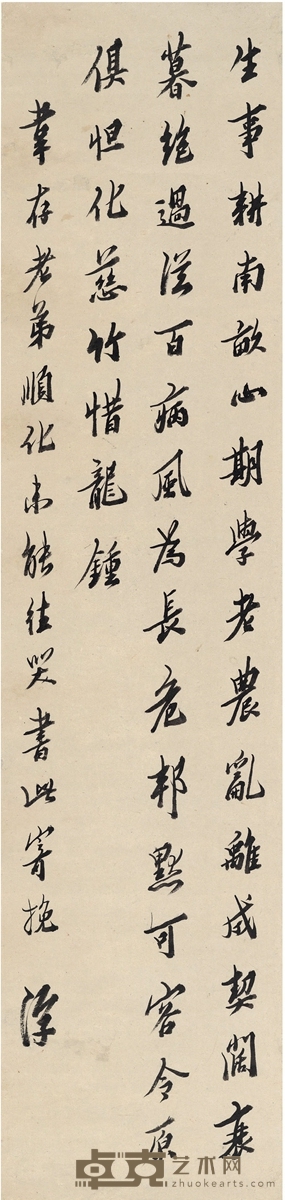 生事耕南畝心期學老農亂離成契闊衰
暮絶過從百病風為長危邦黙可容令原
俱怛化慈竹惜龍鍾
存老弟順化未能往哭書此寄挽 浮
卓克艺术网
zhuokearts.com